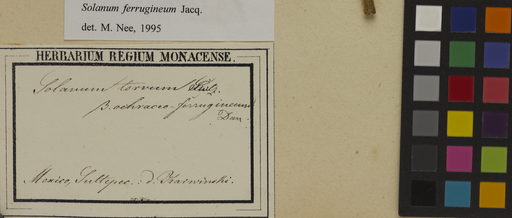 Solanum ferrugineum Jacq.
det. M. Nee, 1995
HERBARIUM REGIUM MONACENSE.
Solanum torvum
β. ochraceo-ferrugineum
Dun.
Mexico, Sultepec. d. Karwinski.